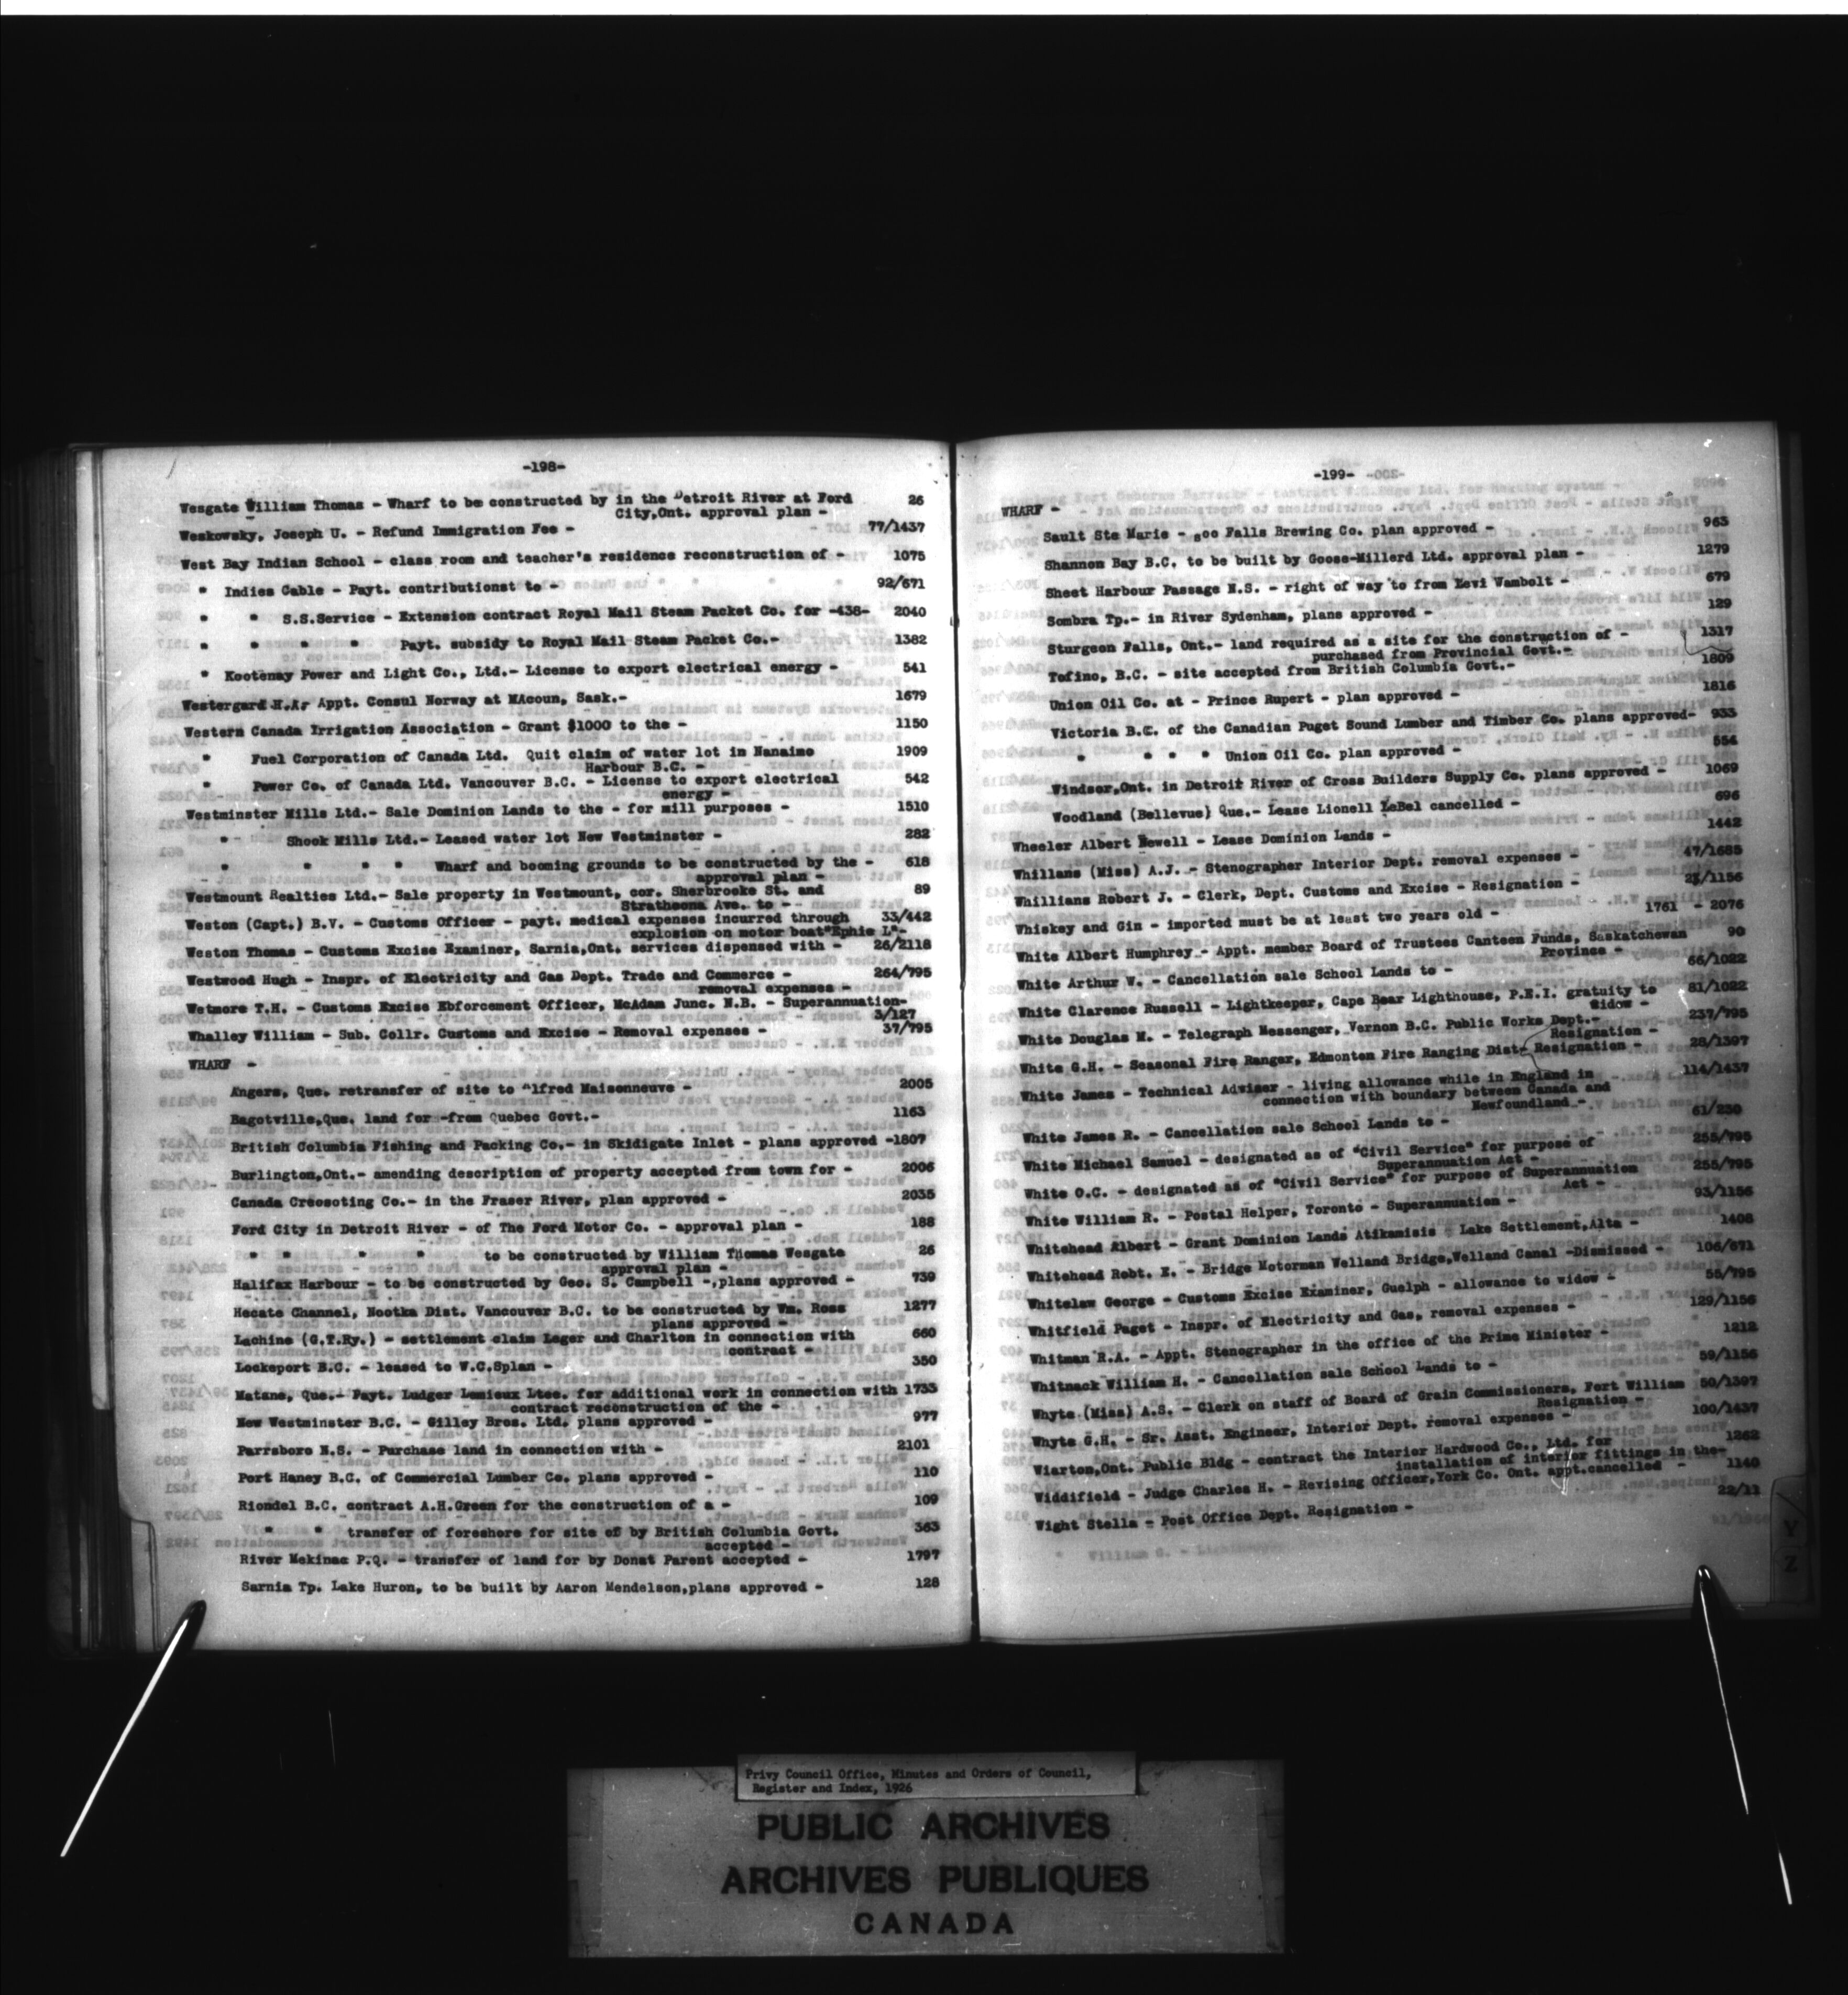 -198-
Wesgate William Thomas - Wharf to be constructed by in the Detroit River at Ford 26
City,Ont. approval plan -
Weskowsky, Joseph U. - Refund Immigration Fee - 77/1437
West Bay Indian School - class room and teacher's residence reconstruction of - 1075
" Indies Cable - Payt. contributionst to - 92/671
" " S.S.Service - Extension contract Royal Mail Steam Packet Co. for -438- 2040
" " " " Payt. subsidy to Royal Mail Steam Packet Co.- 1382
" Kootenay Power and Light Co., Ltd.- License to export electrical energy - 541
Westergard H.A. Appt. Consul Norway at MAcoun, Sask.- 1679
Western Canada Irrigation Association - Grant $1000 to the - 1150
" Fuel Corporation of Canada Ltd. Quit claim of water lot in Nanaimo 1909
Harbour B.C. -
" Power Co. of Canada Ltd. Vancouver B.C. - License to export electrical 542
energy -
Westminster Mills Ltd.- Sale Dominion Lands to the - for mill purposes - 1510
" Shook Mills Ltd.- Leased water lot New Westminster - 282
" " " " Wharf and booming grounds to be constructed by the - 618
approval plan -
Westmount Realties Ltd.- Sale property in Westmount, cor. Sherbrooke St. and 89
Strathcona Ave. to -
Weston (Capt.) B.V. - Customs Officer - payt. medical expenses incurred through 33/442
explosion on motor boat"Ephie L"-
Weston Thomas - Customs Excise Examiner, Sarnia,Ont. services dispensed with - 26/2118
Westwood Hugh - Inspr. of Electricity and Gas Dept. Trade and Commerce - 264/795
removal expenses -
Wetmore T.H. - Customs Excise Ebforcement Officer, McAdam Junc. N.B. - Superannuation-
3/127
Whalley William - Sub. Collr. Customs and Excise - Removal expenses - 37/795
WHARF -
Angers, Que. retransfer of site to Alfred Maisonneuve - 2005
Bagotville,Que. land for -from Quebec Govt.- 1163
British Columbia Fishing and Packing Co.- in Skidigate Inlet - plans approved -1807
Burlington,Ont.- amending description of property accepted from town for - 2006
Canada Creosoting Co.- in the Fraser River, plan approved - 2035
Ford City in Detroit River - of The Ford Motor Co. - approval plan - 188
" " " " to be constructed by William Thomas Wesgate 26
approval plan -
Halifax Harbour - to be constructed by Geo. S. Campbell -,plans approved - 739
Hecate Channel, Nootka Dist. Vancouver B.C. to be constructed by Wm. Ross 1277
plans approved -
Lachine (G.T.Ry.) - settlement claim Leger and Charlton in connection with 660
contract -
Lockeport B.C. - leased to W.C.Splan - 350
Matane, Que.- Payt. Ludger Lemieux Ltee. for additional work in connection with 1733
contract reconstruction of the -
New Westminster B.C. - Gilley Bros. Ltd. plans approved - 977
Parrsboro N.S. - Purchase land in connection with - 2101
Port Haney B.C. of Commercial Lumber Co. plans approved - 110
Riondel B.C. contract A.H.Green for the construction of a - 109
" " transfer of foreshore for site of by British Columbia Govt. 363
accepted -
River Mekinac P.Q. - transfer of land for by Donat Parent accepted - 1797
Sarnia Tp. Lake Huron, to be built by Aaron Mendelson,plans approved - 128
-199-
WHARF -
Sault Ste Marie - Soo Falls Brewing Co. plan approved - 963
Shannon Bay B.C. to be built by Goose-Millerd Ltd. approval plan - 1279
Sheet Harbour Passage N.S. - right of way to from Levi Wambolt - 679
Sombra Tp.- in River Sydenham, plans approved - 129
Sturgeon Falls, Ont.- land required as a site for the construction of - 1317
purchased from Provincial Govt.-
Tofino, B.C. - site accepted from British Columbia Govt.- 1809
Union Oil Co. at - Prince Rupert - plan approved - 1816
Victoria B.C. of the Canadian Puget Sound Lumber and Timber Co. plans approved- 933
" " " " Union Oil Co. plan approved - 554
Windsor,Ont. in Detroit River of Cross Builders Supply Co. plans approved - 1069
Woodland (Bellevue) Que.- Lease Lionell LeBel cancelled - 696
Wheeler Albert Newell - Lease Dominion Lands - 1442
Whillans (Miss) A.J. - Stenographer Interior Dept. removal expenses - 47/1685
Whillians Robert J. - Clerk, Dept. Customs and Excise - Resignation - /1156
Whiskey and Gin - imported must be at least two years old - 1761 - 2076
White Albert Humphrey - Appt. member Board of Trustees Canteen Funds, Saskatchewan 90
Province -
White Arthur W. - Cancellation sale School Lands to - 66/1022
White Clarence Russell - Lightkeeper, Cape Bear Lighthouse, P.E.I. gratuity to 81/1022
widow -
White Douglas M. - Telegraph Messenger, Vernon B.C. Public Works Dept.- 237/795
Resignation -
White G.H. - Seasonal Fire Ranger, Edmonton Fire Ranging Dist. Resignation - 28/1397
White James - Technical Adviser - living allowance while in England in 114/1437
connection with boundary between Canada and
Newfoundland -
White James R. - Cancellation sale School Lands to - 61/230
White Michael Samuel - designated as of "Civil Service" for purpose of 255/795
Superannuation Act -
White O.C. - designated as of "Civil Service" for purpose of Superannuation 255/795
Act -
White William R. - Postal Helper, Toronto - Superannuation - 93/1156
Whitehead Albert - Grant Dominion Lands Atikamisis Lake Settlement,Alta - 1408
Whitehead Robt. E. - Bridge Motorman Welland Bridge,Welland Canal -Dismissed - 106/671
Whitelaw George - Customs Excise Examiner, Guelph - allowance to widow - 55/795
Whitfield Paget - Inspr. of Electricity and Gas, removal expenses - 129/1156
Whitman R.A. - Appt. Stenographer in the office of the Prime Minister - 1212
Whitnack William H. - Cancellation sale School Lands to - 59/1156
Whyte (Miss) A.S. - Clerk on staff of Board of Grain Commissioners, Fort William 50/1397
Resignation -
Whyte G.H. - Sr. Asst. Engineer, Interior Dept. removal expenses - 100/1437
Wiarton,Ont. Public Bldg - contract the Interior Hardwood Co., Ltd. for 1262
installation of interior fittings in the-
Widdifield - Judge Charles H. - Revising Officer,York Co. Ont. appt.cancelled - 1140
Wight Stella - Post Office Dept. Resignation - 22/11
Y
Z
Privy Council Office, Minutes and Orders of Council,
Register and Index, 1926
PUBLIC ARCHIVES
ARCHIVES PUBLIQUES
CANADA